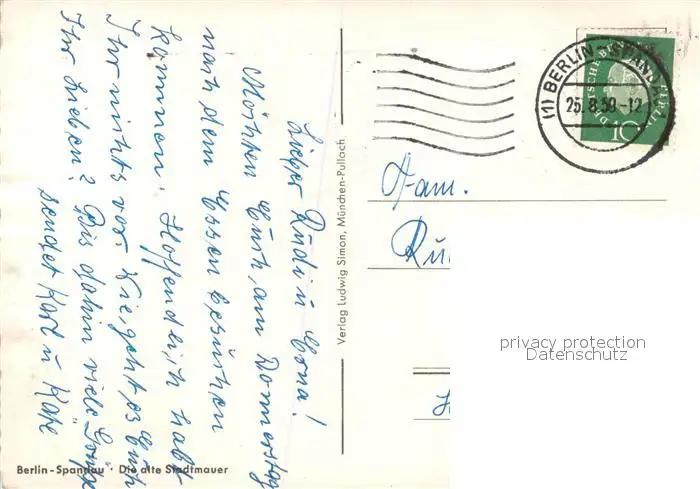 Lieber Rudi u Erna!
Möchten Euch, am Donnerstag
nach dem Essen besuchen
kommen. Hoffendlich habt
Ihr nichts vor. Wie geht es Euch
Ihr Lieben? Bis dahin viele Grüße
sendet Karl u Käte
Berlin-Spandau · Die alte Stadtmauer
Verlag Ludwig Simon, München-Pullach
(1) BERLIN-SPANDAU 1
25.8.59-12
DEUTSCHE BUNDESPOST BERLIN
10
Fam.
privacy protection
Datenschutz